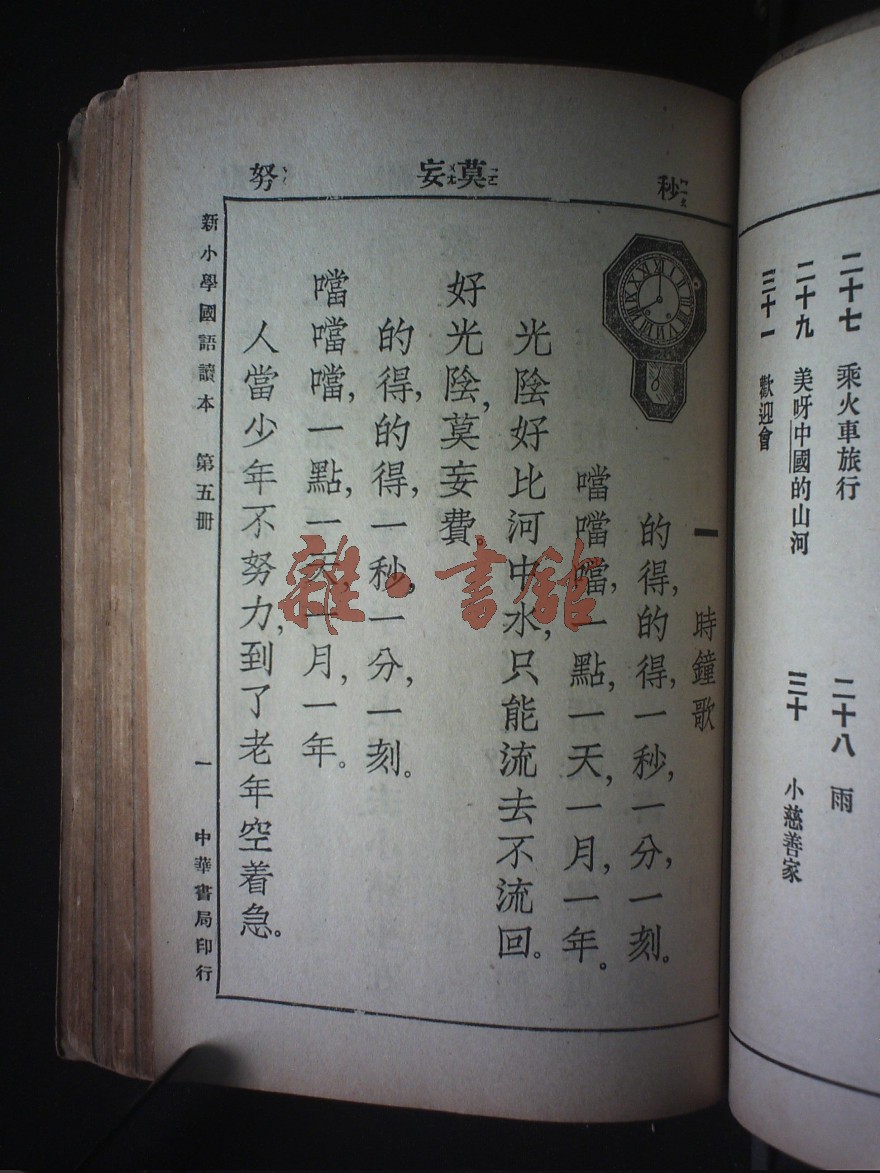 二十七 乘火車旅行
二十八 雨
二十九 美呀中國的山河
三十 小慈善家
三十一 歡迎會
秒
莫 妄
努
一 時鐘歌
的得,的得,一秒,一分,一刻。
噹噹噹,一點,一天,一月,一年。
光陰好比河中水,只能流去不流回。
好光陰,莫妄費。
的得,的得,一秒,一分,一刻。
噹噹噹,一點,一天,一月,一年。
人當少年不努力,到了老年空着急。
新小學國語讀本 第五冊 一 中華書局印行
雜·書館